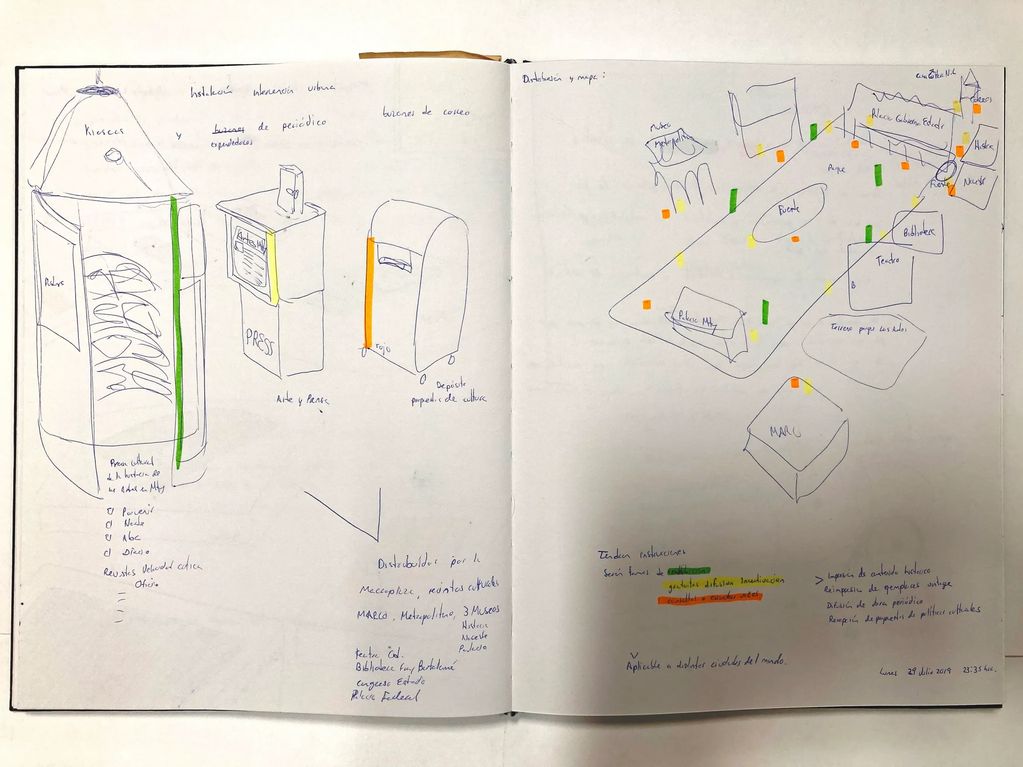 Instalación intervención urbana
Kioscos
y buzones de periódico
expendedoras
buzones de correo
Arte y
PRESS
rojo
Arte y Prensa
Depósito
propuestas de cultura
Prensa cultural
de la historia de
las Artes en Mty
Porvenir
Norte
Abc
Diario
Revistas Velocidad crítica
Oficio
Distribuidos por la
Macroplaza, recintos culturales
MARCO, Metropolitano, 3 Museos
Historia
Noreste
Palacio
teatro Cd.
Biblioteca Fray Bartolomé
congreso Estado
Palacio Federal
Distribución y mapa:
Museo
Metropolitano
Palacio Gobierno Estado
correos
Historia
Noreste
Fuente
Biblioteca
Teatro
B
Fuente
Palacio Mty
MARCO
Tendrán instrucciones
Serán tomos de exhibición
gratuitos difusión Investigación
> Impresión de contenido histórico
Reimpresión de ejemplares
Difusión de obra periódico
Recepción de propuestas de políticas culturales
Aplicable a distintas ciudades del mundo.
Lunes 29 Julio 2019 23:35 hrs.